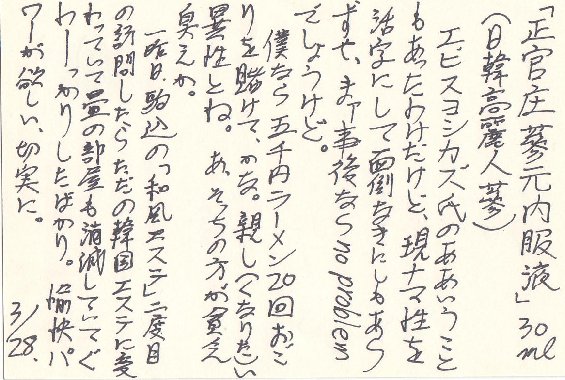 「正官庄蔘元内服液」30ml
（日韓高麗人蔘）
エビスヨシカズ氏のああいうこと
もあったわけだけど、現ナマ性を
活字にして面倒なきにしもあら
ずや、まァ事後なら no problem
でしょうけど。
僕なら五千円ラーメン20回おご
りを賭けて、かな。親しくなりたい
異性とね。あ、そっちの方が貧乏
臭えか。
一昨日駒込の「和風エステ」二度目
の訪問したらただの韓国エステに変
わっていて畳の部屋も消滅していてぐ
わーっかりしたばかり。愉快パ
ワーが欲しい、切実に。
3/28.